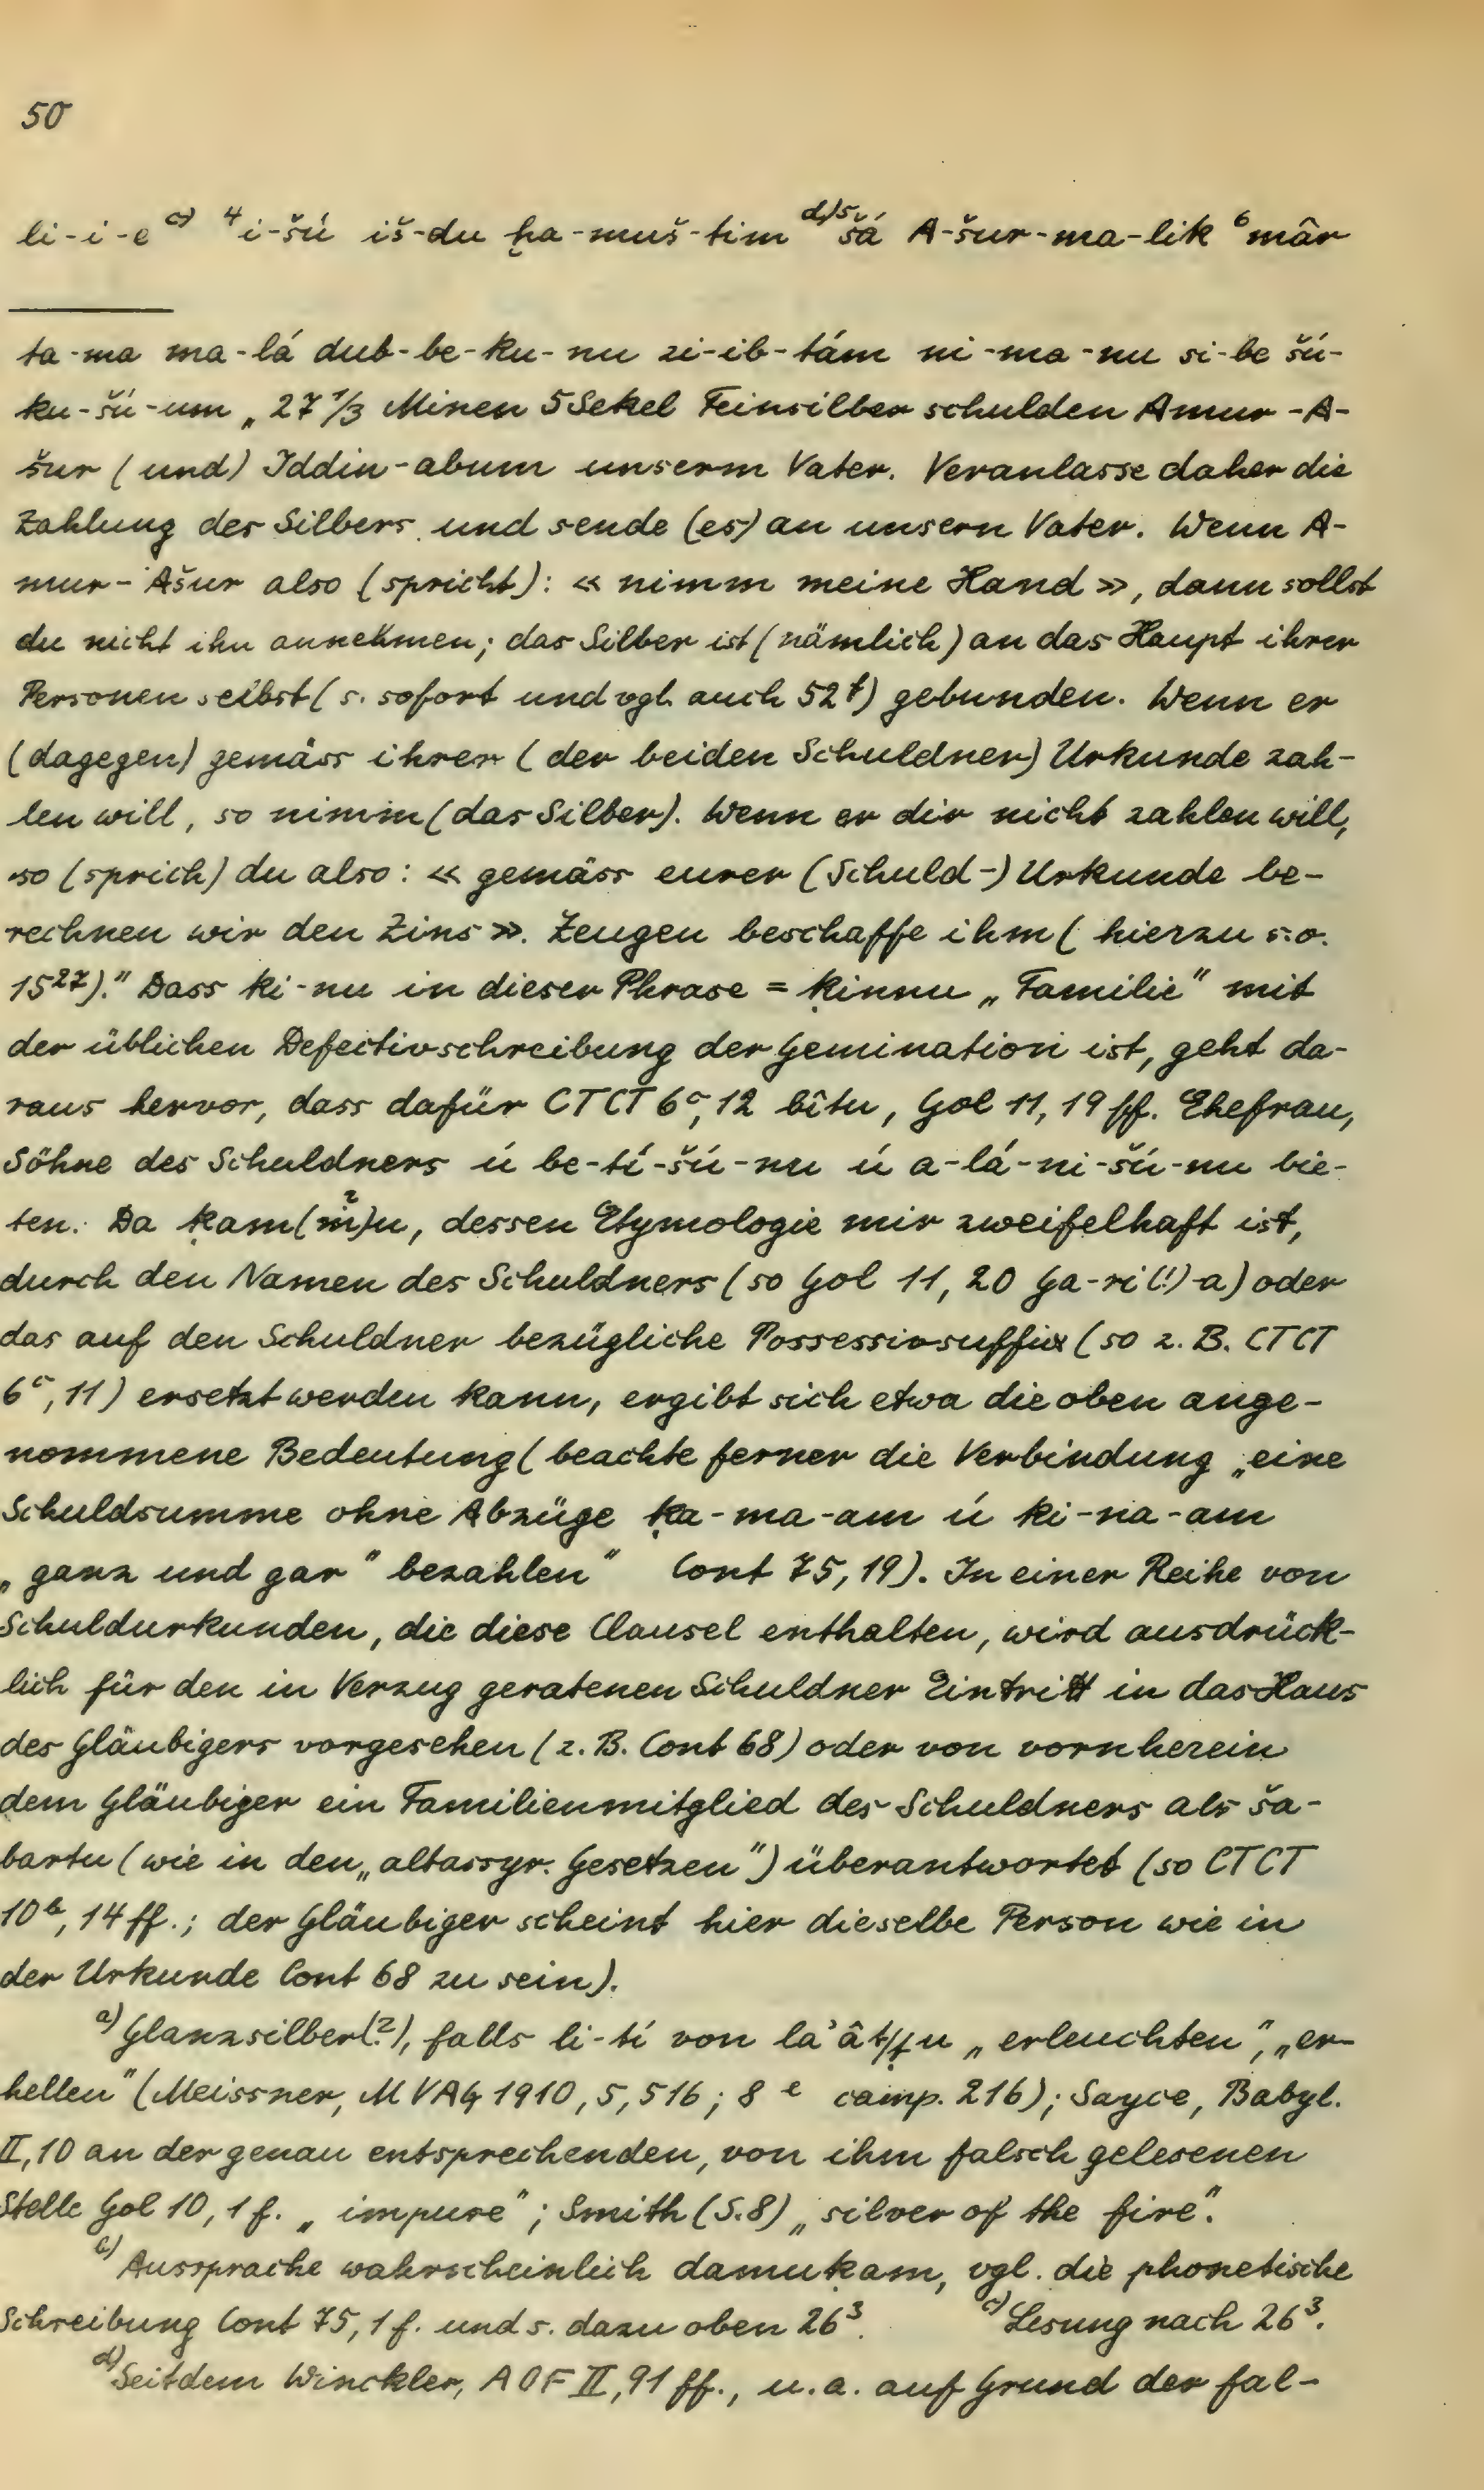 50
li-i-e c) 4 i-šú iš-du ḫa-muš-tim d) 5 šá A-šur-ma-lik 6 mâr
ta-ma ma-lá dub-be-ku-nu zi-ib-tám ni-ma-nu si-be šú-
ku-šú-um „27 1/3 Minen 5 Sekel Feinsilber schulden Amur-A-
šur (und) Iddin-abum unserm Vater. Veranlasse daher die
Zahlung des Silbers und sende (es) an unsern Vater. Wenn A-
mur-Ašur also (spricht): « nimm meine Hand », dann sollst
du nicht ihn annehmen; das Silber ist (nämlich) an das Haupt ihrer
Personen selbst (s. sofort und vgl. auch 52 f) gebunden. Wenn er
(dagegen) gemäss ihrer (der beiden Schuldner) Urkunde zah-
len will, so nimm (das Silber). Wenn er dir nicht zahlen will,
so (sprich) du also: « gemäss eurer (Schuld-) Urkunde be-
rechnen wir den Zins ». Zeugen beschaffe ihm (hierzu s.o.
15 27)." Dass ki-nu in dieser Phrase = ḳinnu „Familie" mit
der üblichen Defectivschreibung der Gemination ist, geht da-
raus hervor, dass dafür CTCT 6 c, 12 bîtu, Gol 11, 19 ff. Ehefrau,
Söhne des Schuldners ú be-tí-šú-nu ú a-lá-ni-šú-nu bie-
ten. Da ḳam(m?)u, dessen Etymologie mir zweifelhaft ist,
durch den Namen des Schuldners (so Gol 11, 20 Ga-ri(!)-a) oder
das auf den Schuldner bezügliche Possessivsuffix (so z. B. CTCT
6 c, 11) ersetzt werden kann, ergibt sich etwa die oben ange-
nommene Bedeutung (beachte ferner die Verbindung „eine
Schuldsumme ohne Abzüge ḳa-ma-am ú ki-na-am
„ganz und gar" bezahlen" Cont 75, 19). In einer Reihe von
Schuldurkunden, die diese Clausel enthalten, wird ausdrück-
lich für den in Verzug geratenen Schuldner Eintritt in das Haus
des Gläubigers vorgesehen (z. B. Cont 68) oder von vornherein
dem Gläubiger ein Familienmitglied des Schuldners als ša-
bartu (wie in den „altassyr. Gesetzen") überantwortet (so CTCT
10 b, 14 ff.; der Gläubiger scheint hier dieselbe Person wie in
der Urkunde Cont 68 zu sein).
a) Glanzsilber(?), falls li-tí von la'ât/ṭu „erleuchten", „er-
hellen" (Meissner, MVAG 1910, 5, 516; 8 e camp. 216); Sayce, Babyl.
II, 10 an der genau entsprechenden, von ihm falsch gelesenen
Stelle Gol 10, 1 f. „impure"; Smith (S. 8) „silver of the fire".
b) Aussprache wahrscheinlich damuḳam, vgl. die phonetische
Schreibung Cont 75, 1 f. und s. dazu oben 26 3. c) Lesung nach 26 3.
d) Seitdem Winckler, AOF II, 91 ff., u. a. auf Grund der fal-